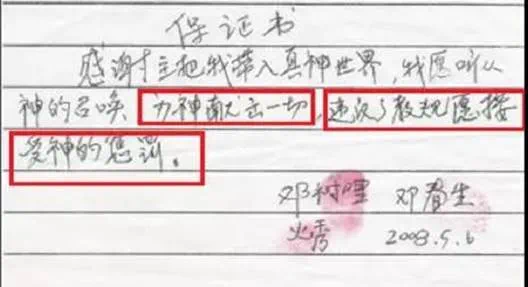 保证书
感谢主把我带入真神世界，我愿听从
神的召唤 为神献出一切，违反了教规愿接
受神的惩罚。
邓树 邓春生
火秀 2003.5.6